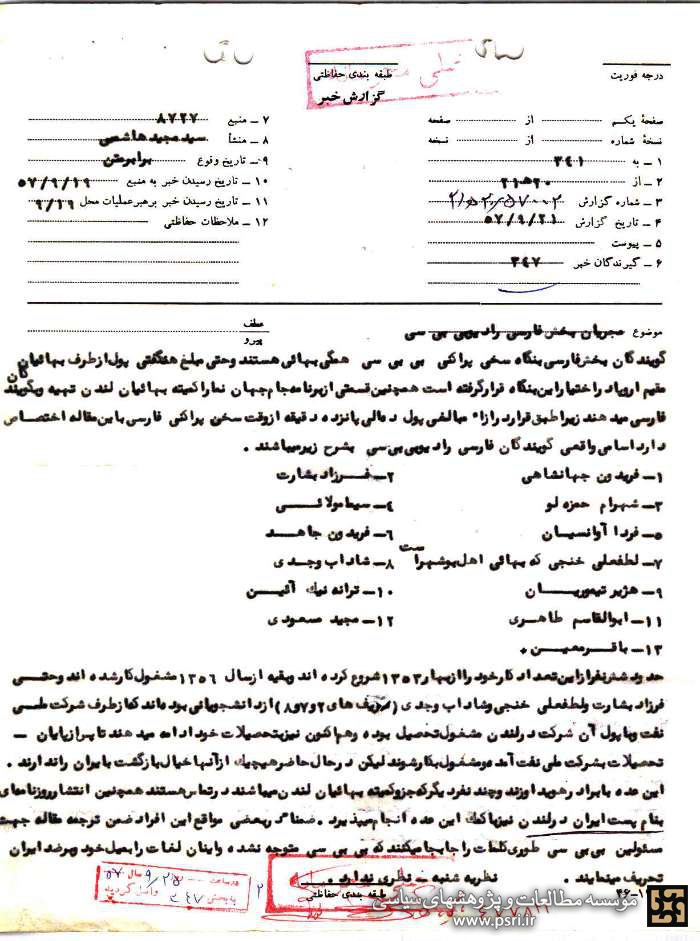 درجه فوریت
طبقه بندی حفاظتی
گزارش خبر
صفحهٔ یکم از صفحه
نسخهٔ شماره از نسخه
۱ ـ به ۳۴۱
۲ ـ از ۲۱ﻫ۲۰
۳ ـ شماره گزارش
۴ ـ تاریخ گزارش ۵۷/۹/۲۱
۵ ـ پیوست
۶ ـ گیرندگان خبر ۳۴۷
۷ ـ منبع ۸۷۲۷
۸ ـ منشأ سید مجید هاشمی
۹ ـ تاریخ وقوع برابر متن
۱۰ ـ تاریخ رسیدن خبر به منبع ۵۷/۹/۱۹
۱۱ ـ تاریخ رسیدن خبر برهبر عملیات محل ۹/۱۹
۱۲ ـ ملاحظات حفاظتی
موضوع جریان بخش فارسی رادیو بی بی سی
عطف
پیرو
گویندگان بخش فارسی بنگاه سخن پراکنی بی بی سی همگی بهائی هستند و حتی مبلغ هنگفتی پول از طرف بهائیان
مقیم اروپا در اختیار این بنگاه قرار گرفته است همچنین قسمتی از برنامه جام جهان نما را کمیته بهائیان لندن تهیه و بگویندگان
فارسی میدهند زیرا طبق قرارداد ازاء مبالغی پول در مالی پانزده دقیقه از وقت سخن پراکنی فارسی باین مقاله اختصاص
دارد اسامی واقعی گویندگان فارسی رادیو بی بی سی بشرح زیر میباشند .
۱ـ فریدون جهانشاهی ۲ـ فرزاد بشارت
۳ـ شهرام حمزه لو ۴ـ سیما مولائی
۵ـ فردا آوانسیان ۶ـ فریدون جاهد
۷ـ لطفعلی خنجی که بهائی اهل بوشهر است ۸ـ شاداب وجدی
۹ـ هژیر تیموریان ۱۰ـ ترانه نیک آئین
۱۱ـ ابوالقاسم طاهری ۱۲ـ مجید مسعودی
۱۳ـ باقر معین .
حدود شش نفر از این تعداد کار خود را از بهار ۱۳۵۳ شروع کرده اند و بقیه از سال ۱۳۵۶ مشغول کار شده اند و حتی
فرزاد بشارت و لطفعلی خنجی و شاداب وجدی (ردیف های ۲و۷و۸) از دانشجویانی بوده اند که از طرف شرکت ملی
نفت و با پول آن شرکت در لندن مشغول تحصیل بوده و هم اکنون نیز بتحصیلات خود ادامه میدهند تا پس از پایان ـ
تحصیلات بشرکت ملی نفت آمده و مشغول بکار شوند لیکن در حال حاضر هیچیک از آنها خیال بازگشت بایران را ندارند .
این عده با برادر هویدا در لندن و چند نفر دیگر که جزو کمیته بهائیان لندن میباشند در تماس هستند همچنین انتشار روزنامه‌ای
بنام پست ایران در لندن نیز با کمک این عده انجام میپذیرد . ضمناً در بعضی مواقع این افراد ضمن ترجمه مقاله جهت
مسئولین بی بی سی طوری کلمات را جابجا میکنند که بی بی سی متوجه نشده و باین لغات را بمیل خود و بر ضد ایران
تحریف مینمایند . نظریه شنبه ـ نظری ندارد .
طبقه بندی حفاظتی
موسسه مطالعات و پژوهشهای سیاسی
www.psri.ir